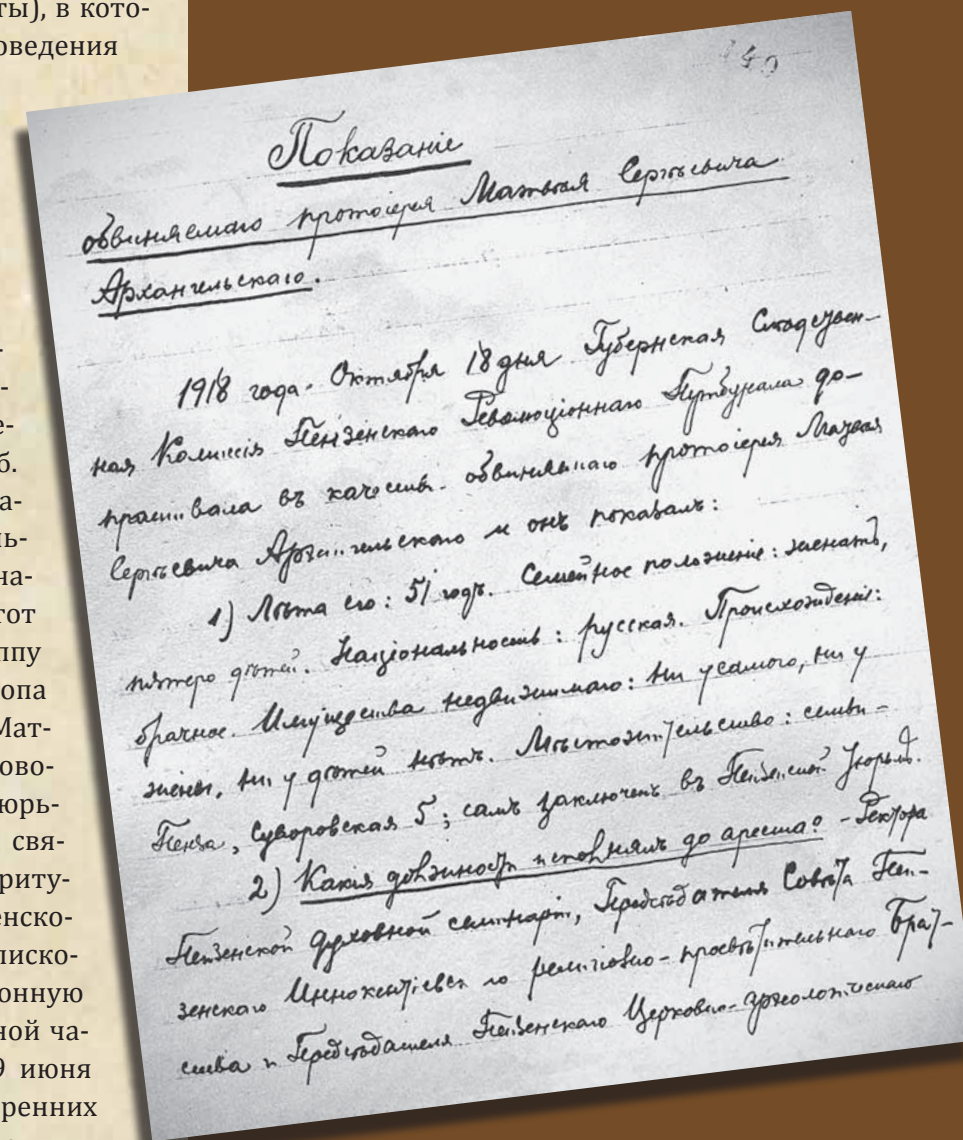 ты), в кото-
оведения
-
-
е-
б.
а-
ль-
на-
тот
ппу
опа
Мат-
ово-
юрь-
свя-
риту-
енско-
писко-
онную
ной ча-
9 июня
ренних
140
Показаніе
обвиняемаго протоіерея Матвѣя Сергѣевича
Архангельскаго.
1918 года. Октября 18 дня Губернская Слѣдствен-
ная Коммиссія Пензенскаго Революціоннаго Трибунала до-
прашивала въ качествѣ обвиняемаго протоіерея Матвѣя
Сергѣевича Архангельскаго и онъ показалъ:
1) Лѣта его: 51 годъ. Семейное положеніе: женатъ,
пятеро дѣтей. Національность: русская. Происхожденіе:
брачное. Имущества недвижимаго: ни у самого, ни у
жены, ни у дѣтей нѣтъ. Мѣстожительство: семьи -
Пенза, Суворовская 5; самъ заключенъ въ Пензенской Тюрьмѣ.
2) Какія должности исполнялъ до ареста? - Ректора
Пензенской духовной семинаріи, Предсѣдателя Совѣта Пен-
зенскаго Иннокентіевскаго религіозно-просвѣтительнаго Брат-
ства и Предсѣдателя Пензенскаго Церковно-археологическаго